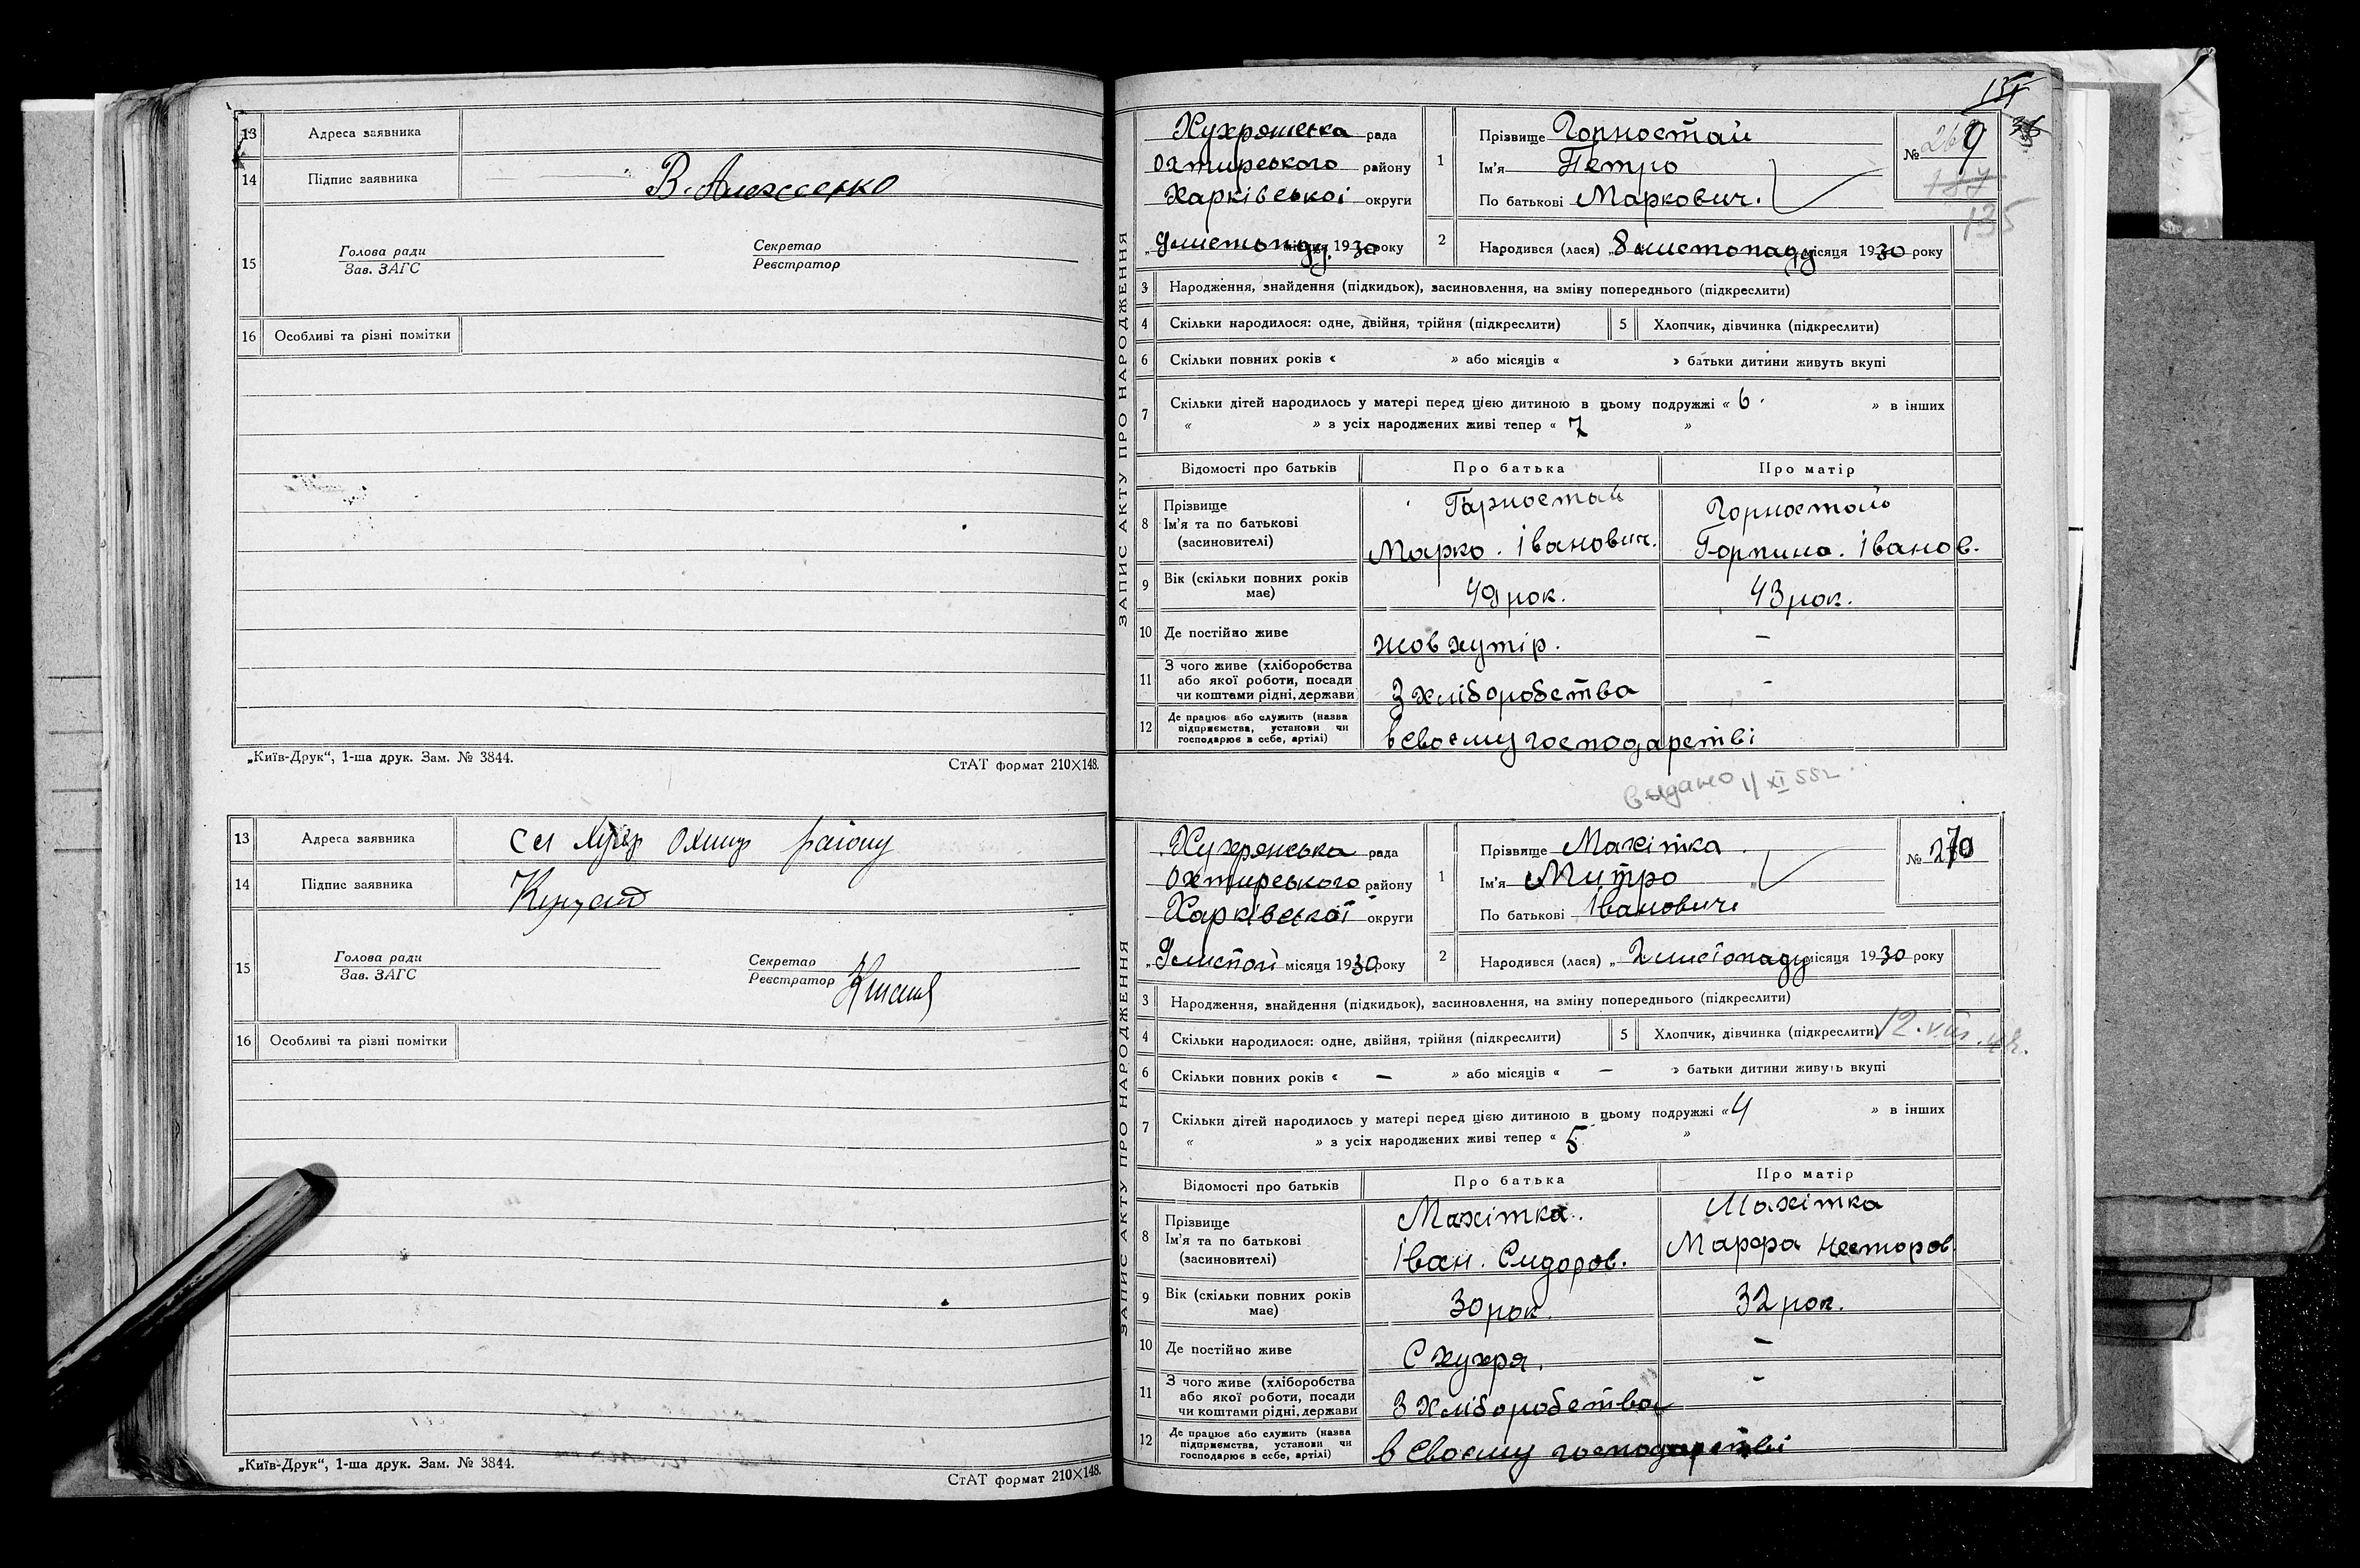 13 Адреса заявника
14 Підпис заявника
15 Голова ради Секретар
Зав. ЗАГС Реєстратор
16 Особливі та різні помітки
„Київ-Друк“, 1-ша друк. Зам. № 3844. СтАТ формат 210×148.
13 Адреса заявника
14 Підпис заявника
15 Голова ради Секретар
Зав. ЗАГС Реєстратор
16 Особливі та різні помітки
„Київ-Друк“, 1-ша друк. Зам. № 3844. СтАТ формат 210×148.
ЗАПИС АКТУ ПРО НАРОДЖЕННЯ
Хухрянська рада
Охтирського району
Харківської округи
„9 листопаду місяця 1930 року
1 Прізвище Горностай
Ім'я Петро
По батькові Маркович.
№ 269
187
135
2 Народився (лася) „8 листопаду місяця 1930 року
3 Народження, знайдення (підкидьок), засиновлення, на зміну попереднього (підкреслити)
4 Скільки народилося: одне, двійня, трійня (підкреслити) 5 Хлопчик, дівчинка (підкреслити)
6 Скільки повних років « » або місяців « » батьки дитини живуть вкупі
7 Скільки дітей народилось у матері перед цією дитиною в цьому подружжі « 6 » в інших
« » з усіх народжених живі тепер « 7 »
Відомості про батьків Про батька Про матір
8 Прізвище Ім'я та по батькові (засиновителі)
Горностай Горностай
Марко. Іванович. Горпина. Іванов.
9 Вік (скільки повних років має) 49 рок. 43 рок.
10 Де постійно живе хутір. –
11 З чого живе (хліборобства або якої роботи, посади чи коштами рідні, держави) З хліборобства –
12 Де працює або служить (назва підприємства, установи чи господарює в себе, артілі) в своєму господарстві
выдано 1/XI 55 г.
ЗАПИС АКТУ ПРО НАРОДЖЕННЯ
Хухрянська рада
Охтирського району
Харківської округи
„9 листоп місяця 1930 року
1 Прізвище Махітка
Ім'я Митро
По батькові Іванович
№ 270
2 Народився (лася) „2 листопаду місяця 1930 року
3 Народження, знайдення (підкидьок), засиновлення, на зміну попереднього (підкреслити)
4 Скільки народилося: одне, двійня, трійня (підкреслити) 5 Хлопчик, дівчинка (підкреслити)
6 Скільки повних років « – » або місяців « – » батьки дитини живуть вкупі
7 Скільки дітей народилось у матері перед цією дитиною в цьому подружжі « 4 » в інших
« » з усіх народжених живі тепер « 5 »
Відомості про батьків Про батька Про матір
8 Прізвище Ім'я та по батькові (засиновителі)
Махітка. Махітка
Іван. Сидоров. Марфа Несторов.
9 Вік (скільки повних років має) 30 рок. 32 рок.
10 Де постійно живе С хухря. –
11 З чого живе (хліборобства або якої роботи, посади чи коштами рідні, держави) З хліборобства –
12 Де працює або служить (назва підприємства, установи чи господарює в себе, артілі) в своєму господарстві